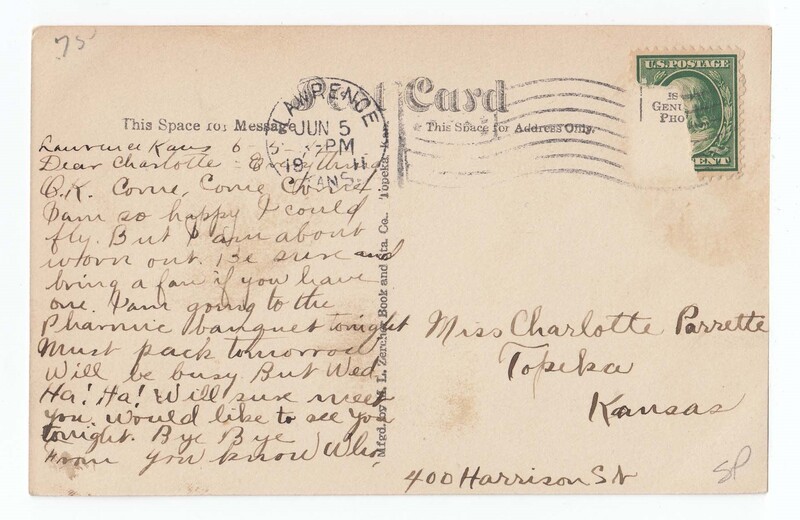 75
Post Card
This Space for Message
This Space for Address Only.
LAWRENCE
JUN 5
PM
19 11
KANS.
U.S. POSTAGE
IS
GENU
PHO
CENT
Lawrence Kans 6-5-
Dear Charlotte = Everything
O.K. Come, Come, Come!
I am so happy I could
fly. But I am about
worn out. Be sure and
bring a fan if you have
one. I am going to the
Pharmic banquet tonight
Must pack tomorrow
Will be busy. But Wed.
Ha! Ha! Will sure meet
you. Would like to see you
tonight. Bye Bye
From you know Who,
Mfgd. by M. L. Zercher Book and Sta. Co., Topeka, Kan.
Miss Charlotte Parrette
Topeka
Kansas
400 Harrison St
SP